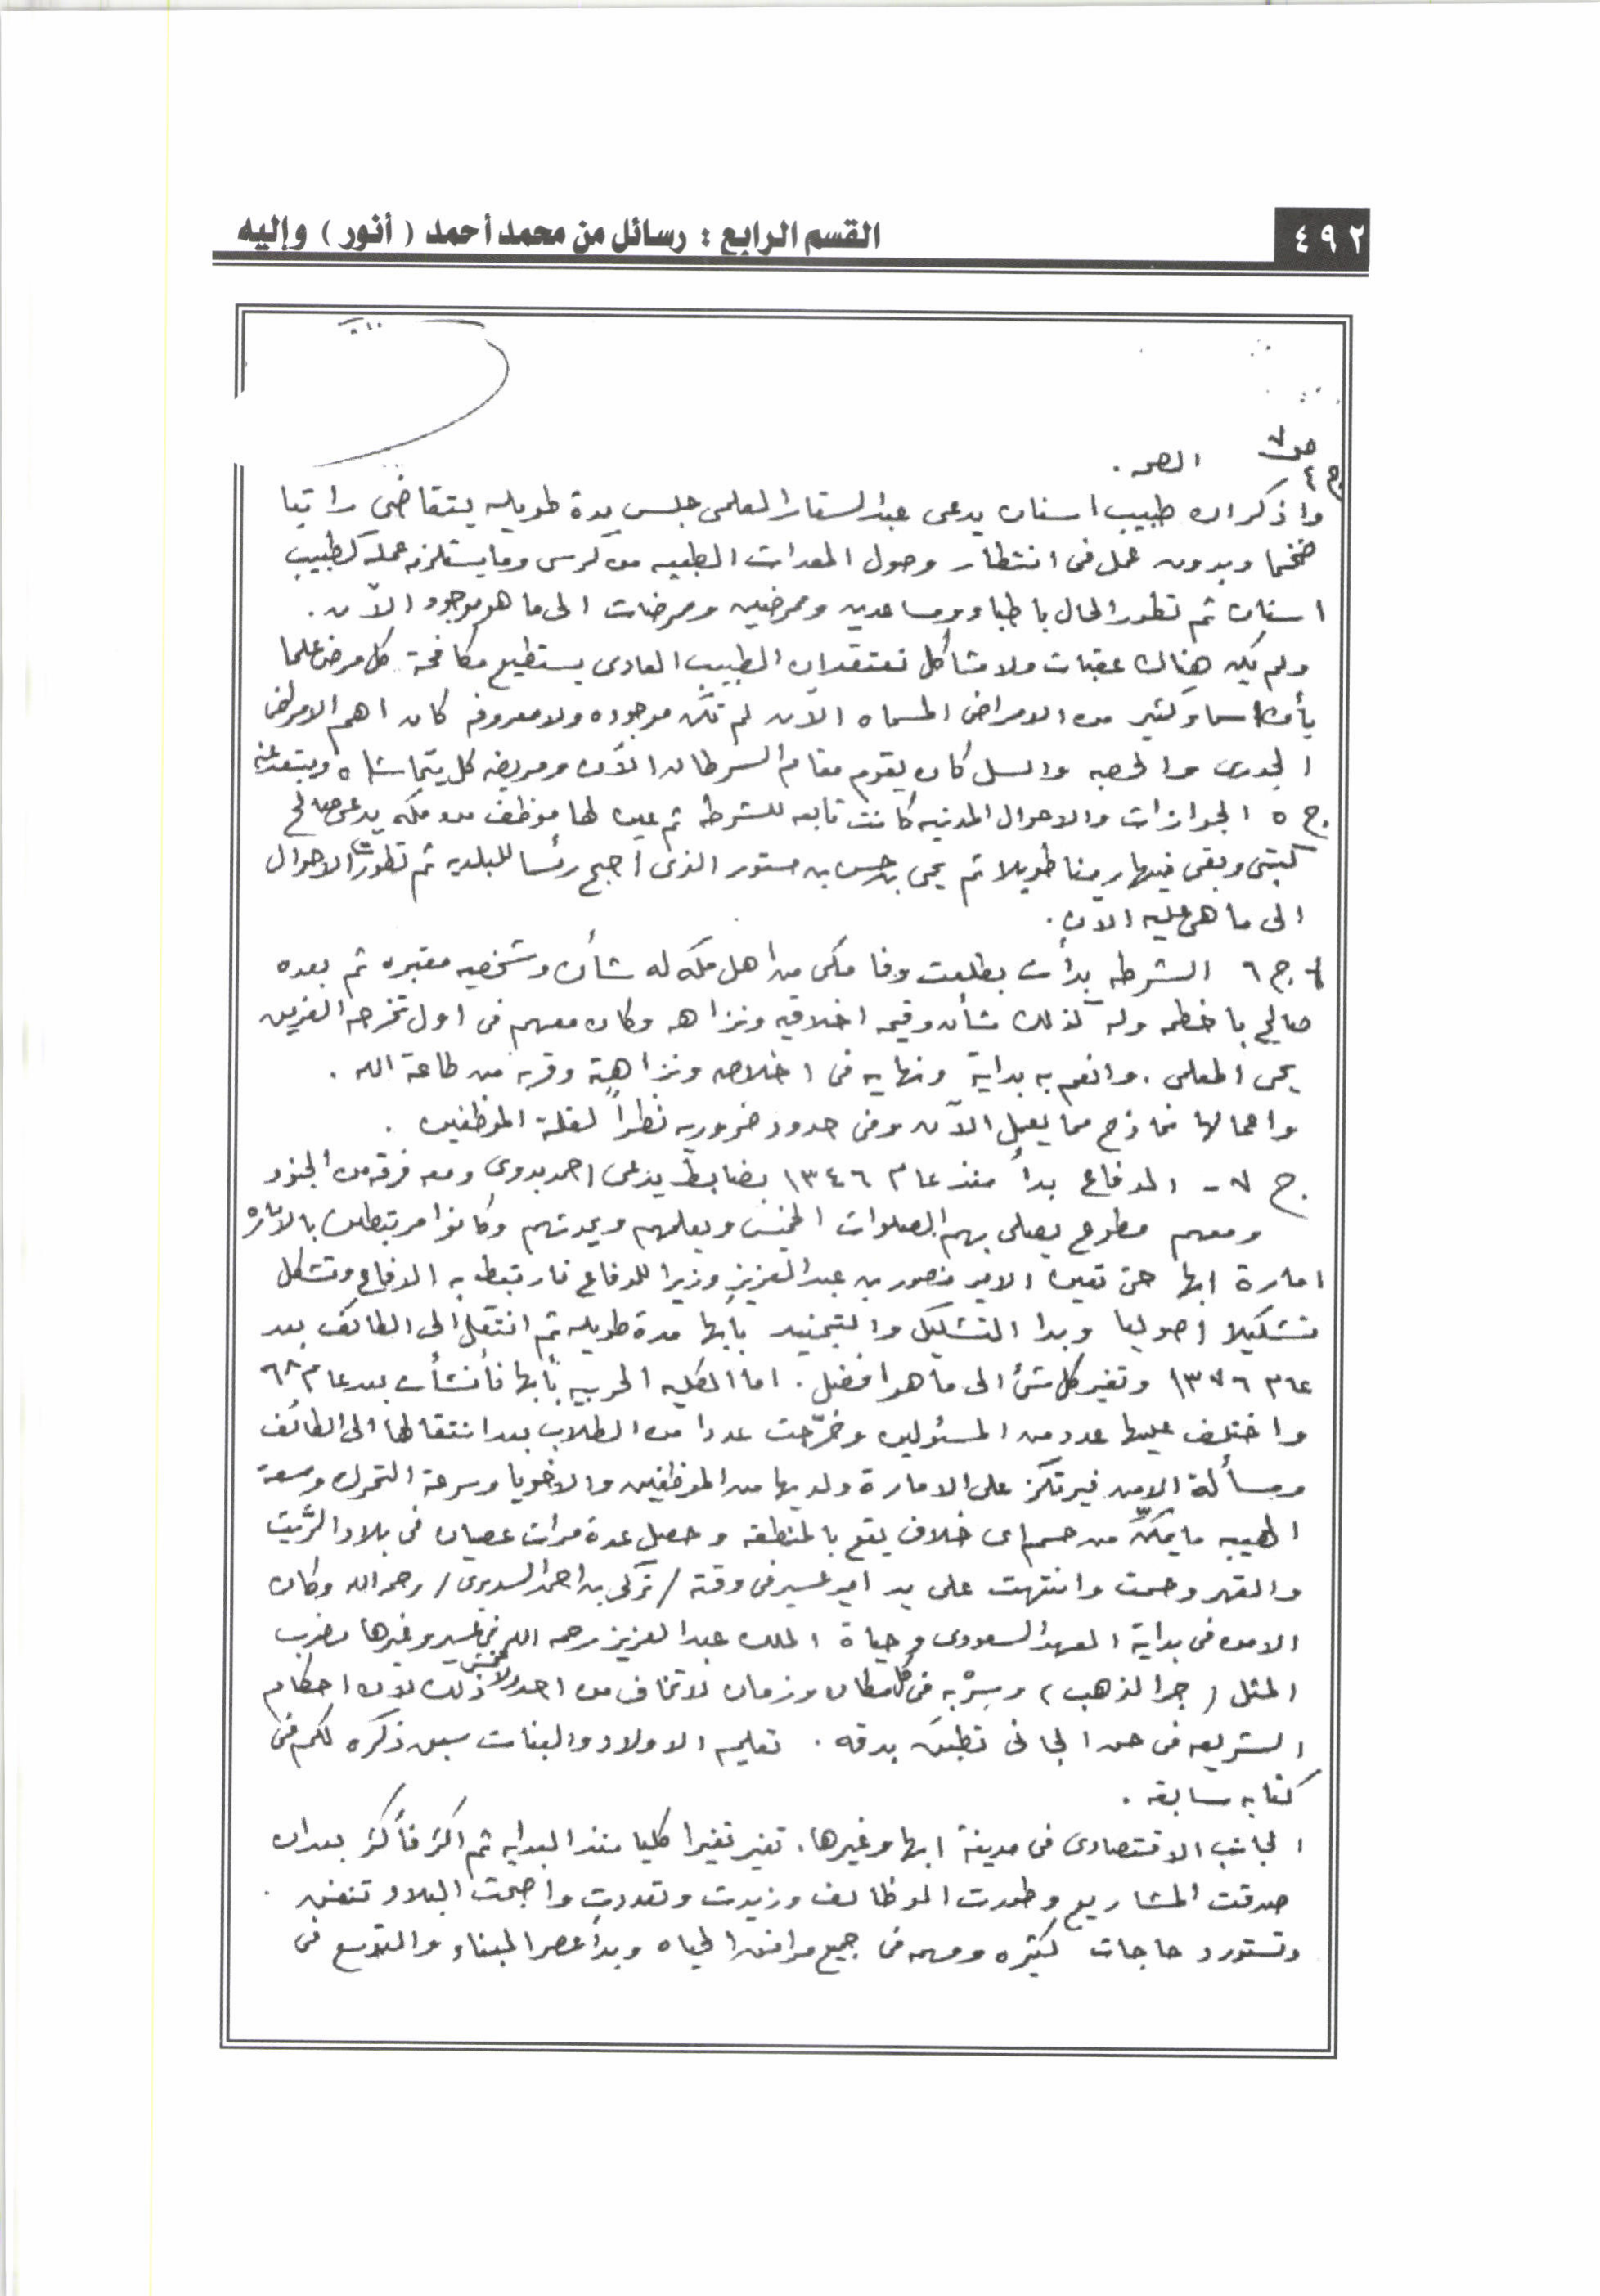 ٤٩٢
القسم الرابع : رسائل من محمد أحمد ( أنور ) وإليه
ص٧
ج٤ الصحه .
واذكر ان طبيب اسنان يدعى عبدالستار المعلمى جلس مدة طويله يتقاضى راتبا
ضخما وبدون عمل فى انتظار وصول المعدات الطبيه من كرسى وما يستلزمه عمله كطبيب
اسنان ثم تطور الحال باطباء ومساعدين وممرضين وممرضات الى ما هو موجود الآن .
ولم يكن هناك عقبات ولا مشاكل نعتقد ان الطبيب العادى يستطيع مكافحة كل مرض علما
بأن اسماء كثير من الامراض المسماه الآن لم تكن موجوده ولا معروفه كان اهم الامراض
الجدرى والحصبه والسل كان يقوم مقام السرطان الآن ومريضه كل يتحاشاه ويبتعد عنه
ج ٥ الجوازات والاحوال المدنيه كانت تابعه للشرطه ثم عين لها موظف من مكه يدعى صالح
كتبتى وبقى فيها زمنا طويلا ثم يحى بن حسن بن مستور الذى اصبح رئسا للبلديه ثم تطورت الاحوال
الى ما هى عليه الآن .
ج ٦ الشرطه بدأت بطلعت وفا مكى من اهل مكه له شأن وشخصيه معتبره ثم بعده
صالح باخطمه وله كذلك شأن وقيمه اخلاقيه ونزاهه وكان معهم فى اول تخرجه الفريق
يحى المعلمى . وانعم به بداية ونهايه فى اخلاصه ونزاهته وقربه من طاعة الله .
واعمالها نماذج مما يعمل الآن وفى حدود ضروريه نظراً لقلة الموظفين .
ج ٧ - الدفاع بدأ منذ عام ١٣٤٦ بضابط يدعى احمد بدوى ومعه فرقه من الجنود
ومعهم مطوع يصلى بهم الصلوات الخمس ويعلمهم ويحدثهم وكانوا مرتبطين بالاماره
امارة ابها حتى تعين الامير منصور بن عبدالعزيز وزيرا للدفاع فارتبط به الدفاع وتشكل
تشكيلا اصوليا وبدا التشكيل والتجنيد بأبها مدة طويله ثم انتقل الى الطائف بعد
عام ١٣٧٦ وتغير كل شئ الى ما هو افضل . اما الكليه الحربيه بأبها فأنشأت بعد عام ٦٨
واختلف عليها عدد من المسئولين وخرّجت عددا من الطلاب بعد انتقالها الى الطائف
ومسألة الامن فيرتكز على الامارة ولديها من الموظفين والاخويا وسرعة التحرك وسعة
الهيبه ما يمكّن من حسم اى خلاف يقع بالمنطقه وحصل عدة مرات عصيان فى بلاد الرَّيث
والقهر وحسمت وانتهت على يد امير عسير فى وقته / تركى بن احمد السديرى / رحمه الله وكان
الامن فى بداية العهد السعودى وحياة الملك عبدالعزيز رحمه الله فى عسير وغيرها مضرب
المثل ( جر الذهب ) وسِرْ به فى كل مكان وزمان لا تخاف من احد ذلك لان احكام
الشريعه فى حق الجانى تطبق بدقه . تعليم الاولاد والبنات سبق ذكره لكم فى
كتابه سابقه .
الجانب الاقتصادى فى مدينة ابها وغيرها . تغير تغيرا كليا منذ البدايه ثم اكثر فأكثر بعد ان
صدقت المشاريع وطورت الوظائف وزيدت وتعددت واصبحت البلاد
وتستورد حاجات كثيره ومهمه فى جميع مرافق الحياه وبدأ عصر البناء والتوسع فى